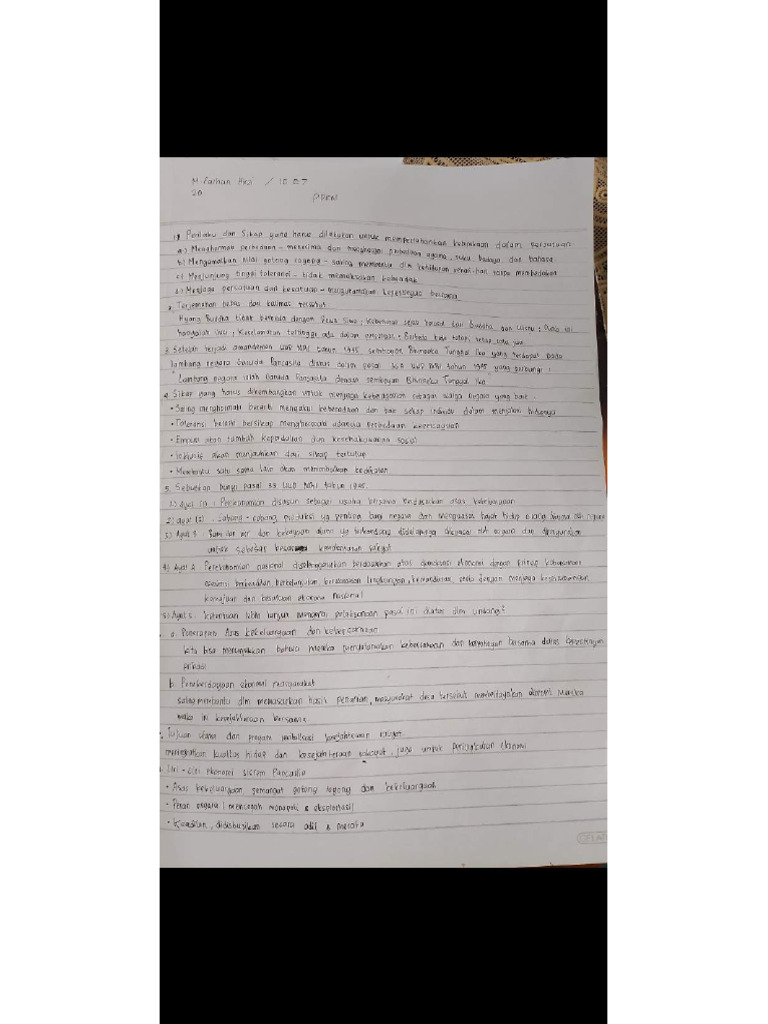 M. Farhan / 10 E7
20
PPKN
1) Perilaku dan Sikap yang harus dilakukan untuk mempertahankan kebinekaan dalam persatuan
a.) Menghormati perbedaan - menerima dan menghargai perbedaan agama, suku budaya dan bahasa.
b.) Mengamalkan nilai gotong royong - saling membantu dlm kesulitan tanpa membedakan
c.) Menjunjung tinggi toleransi - tidak memaksakan kehendak
d.) Menjaga persatuan dan kesatuan - mengutamakan bersama
2. Terjemahan bebas dari kalimat tersebut
Hyang Buddha tidak berbeda dengan Dewa Siwa,
3. Setelah terjadi amandemen UUD NRI tahun 1945 semboyan Bhinneka Tunggal Ika yang terdapat pada
lambang negara Garuda Pancasila diatur dalam pasal 36A UUD NRI tahun 1945 yang berbunyi :
"Lambang negara ialah Garuda Pancasila dengan semboyan Bhinneka Tunggal Ika
4. Sikap yang harus dikembangkan untuk menjaga keberagaman sebagai warga negara yang baik -
• Saling menghormati berarti mengakui keberadaan dan setiap individu dalam menjalani hidupnya
• Toleransi berarti bersikap menghormati adanya perbedaan kepercayaan
• Empati akan tumbuh kepedulian dan kesetiakawanan sosial
• Inklusif akan menjauhkan dari sikap tertutup
• Membantu satu sama lain akan menumbuhkan
5. Sebutkan bunyi pasal 33 UUD NRI tahun 1945.
1) Ayat (1) : Perekonomian disusun sebagai usaha bersama berdasarkan asas kekeluargaan
2) ayat (2) : Cabang - cabang produksi yg penting bagi negara dan menguasai hajat hidup orang
3) Ayat 3 Bumi dan air dan kekayaan alam yg terkandung didalamnya dikuasai negara dan dipergunakan
untuk sebesar besarnya kemakmuran rakyat
4) Ayat 4 Perekonomian nasional diselenggarakan berdasarkan atas demokrasi ekonomi dengan prinsip kebersamaan
efisiensi berkeadilan, berkelanjutan, berwawasan lingkungan, kemandirian, serta dengan menjaga keseimbangan
kemajuan dan kesatuan ekonomi nasional
5) Ayat 5. ketentuan lebih lanjut mengenai pelaksanaan pasal ini diatur dlm undang²
a. Penerapan Asas kekeluargaan dan kebersamaan
kita bisa menunjukkan bahwa mereka kebersamaan dan kepentingan bersama diatas kepentingan
pribadi
b. Pemberdayaan ekonomi masyarakat
saling membantu dlm memasarkan hasil pertanian, masyarakat desa tersebut ekonomi mereka
maka ini kesejahteraan bersama
Tujuan utama dari program kesejahteraan rakyat
meningkatkan kualitas hidup dan kesejahteraan rakyat, juga untuk ekonomi
Ciri - ciri ekonomi sistem Pancasila
• Asas kekeluargaan semangat gotong royong dan kekeluargaan
• Peran negara (mencegah monopoli & eksploitasi)
• Keadilan, didistribusikan secara adil & merata